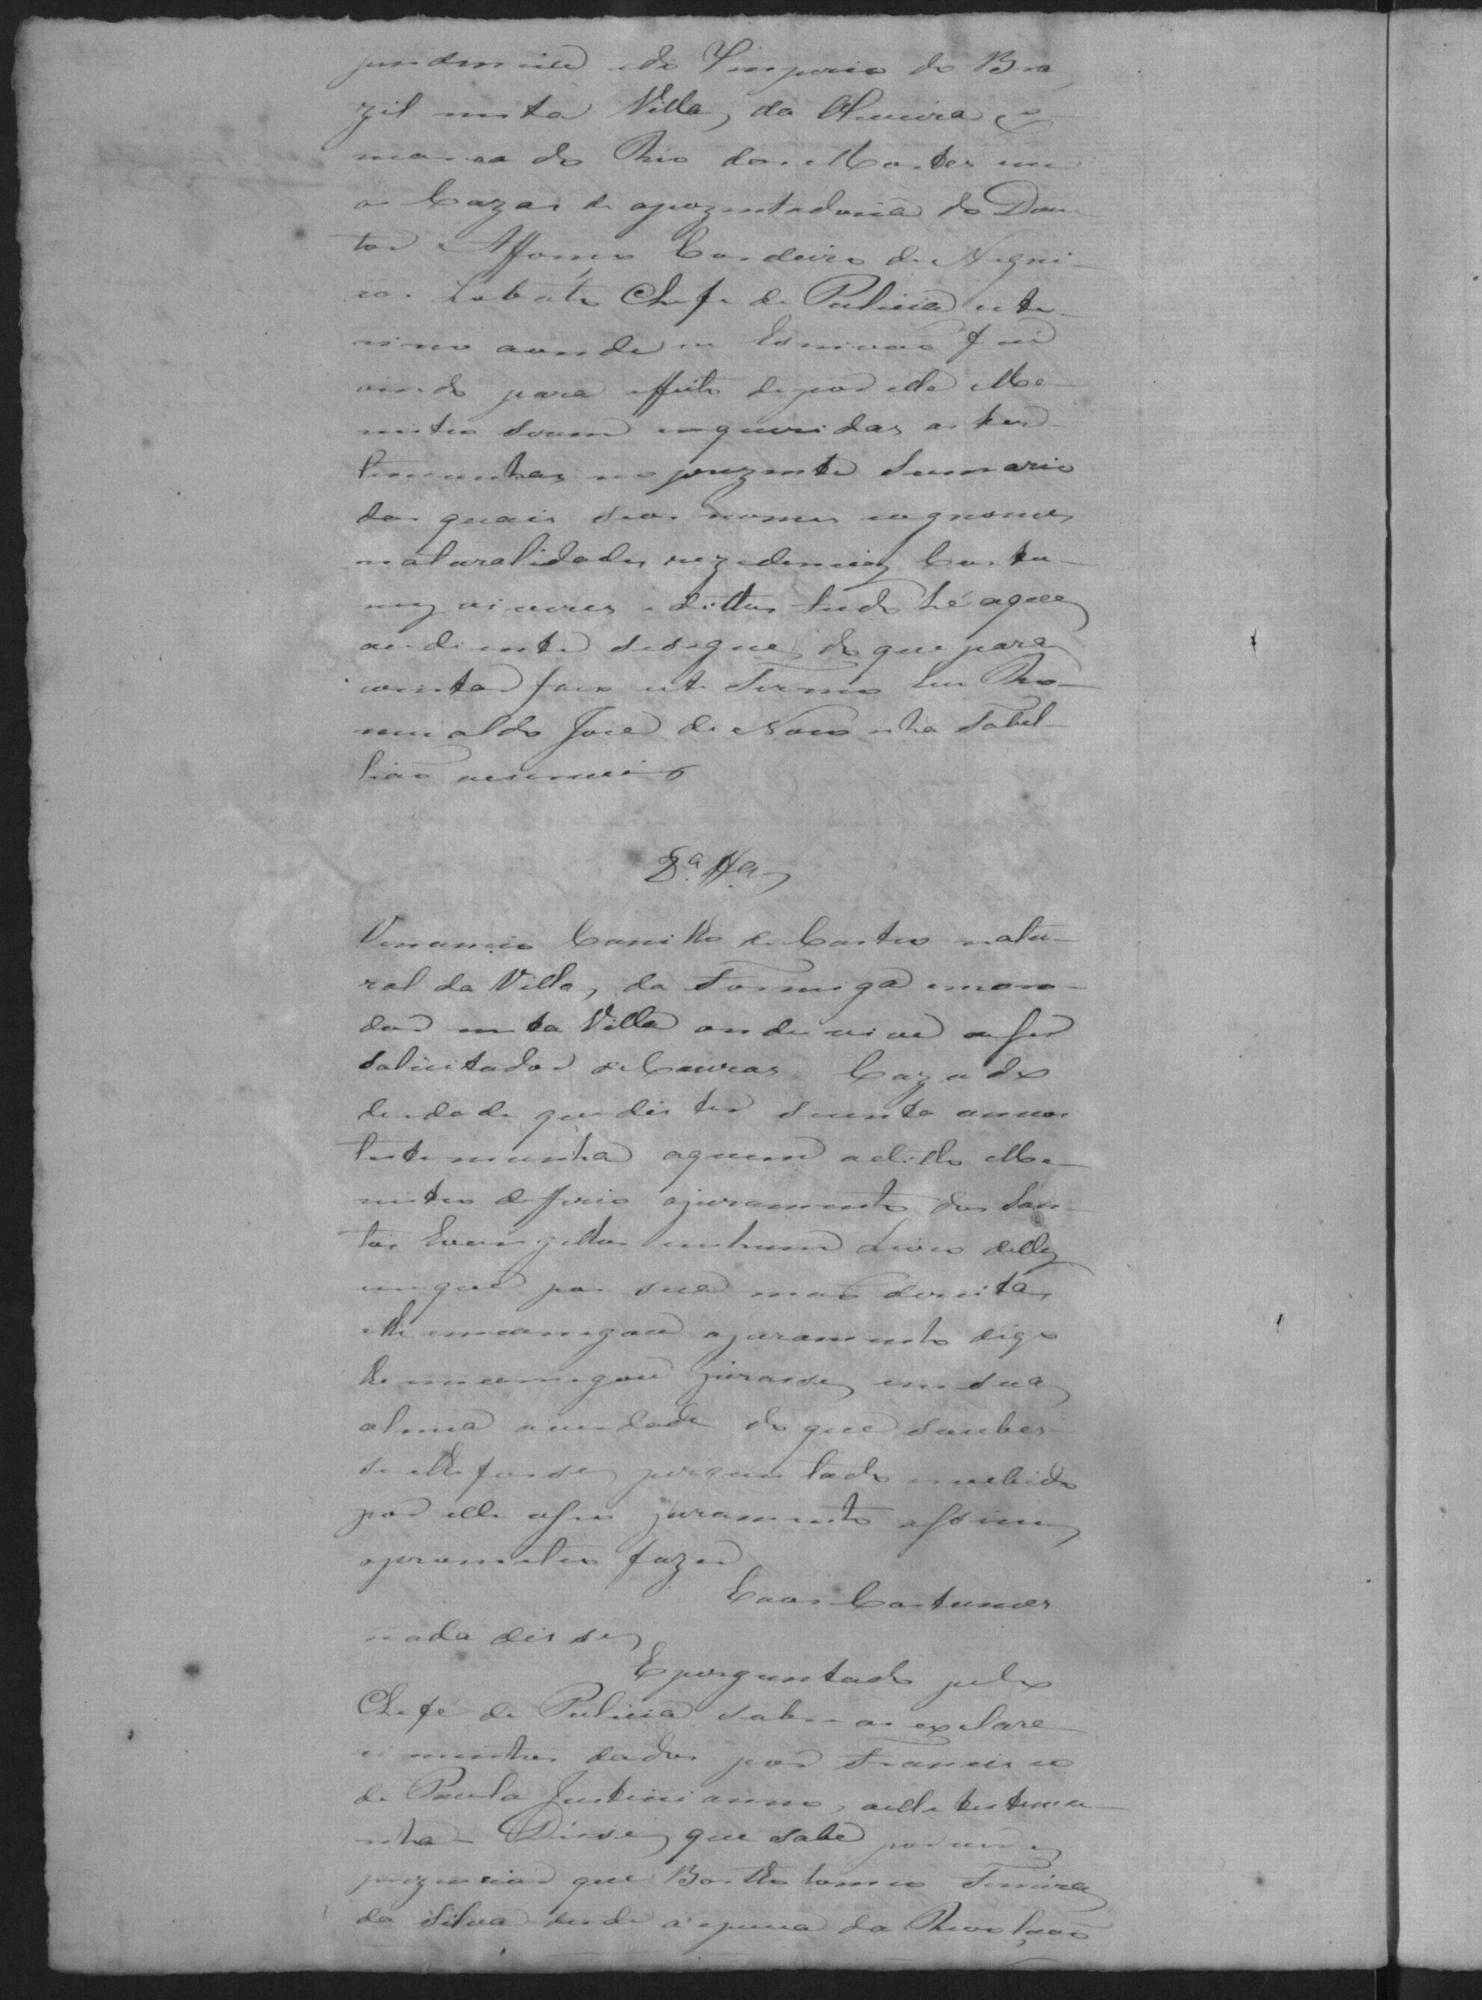 pendencia edo Imperio do Bra
zil nesta Villa, da Oliveira Co
marca do Rio das Mortes em
as Cazas de apozentadoria do Dou
tor Affonso Cordeiro de Negrei
ros Lobato Chefe de Policia inte
rino aonde eu Escrivão fui
vindo para effeito de por elle Me
nistro serem enqueridas as tes
temunhas no prezente Summario
das quais seos nomes cognomes
naturalidades rezidencias Costu
mes viveres e dittos tudo hé aque
aodiente sesegue, do que para
constar faço este Termo Eu Ro
mualdo José de Noronha Tabel
lião oescrevi
8.ª Ttª
Venancio Carrilho de Castro natu
ral da Villa, da Formiga emora
dor nesta Villa onde vive aser
Solicitador de Cauzas Cazado
deidade que dis ter secenta annos
testemunha aquem oditto Me
nistro deferio ojuramento dos San
tos Evangelhos emhum Livro delles
emque pos sua mão dereita,
elhe emcarregou ojuramento digo
lhe emcarregou jurasse, em sua
alma averdade do que soubes
se elhe fosse, perguntado erecebido
por elle oseu juramento assim
oprometeo fazer
Eaos Costumes
nada disse,
Eperguntado pelo
Chefe de Policia sobre os exclare
cimentos dados por Francisco
de Paula Justinianno, aelle testemu
nha Disse, que sabe por ver e
prezenciar que Bartholomeo Ferreira
da Silva desde aepoca da Revolução